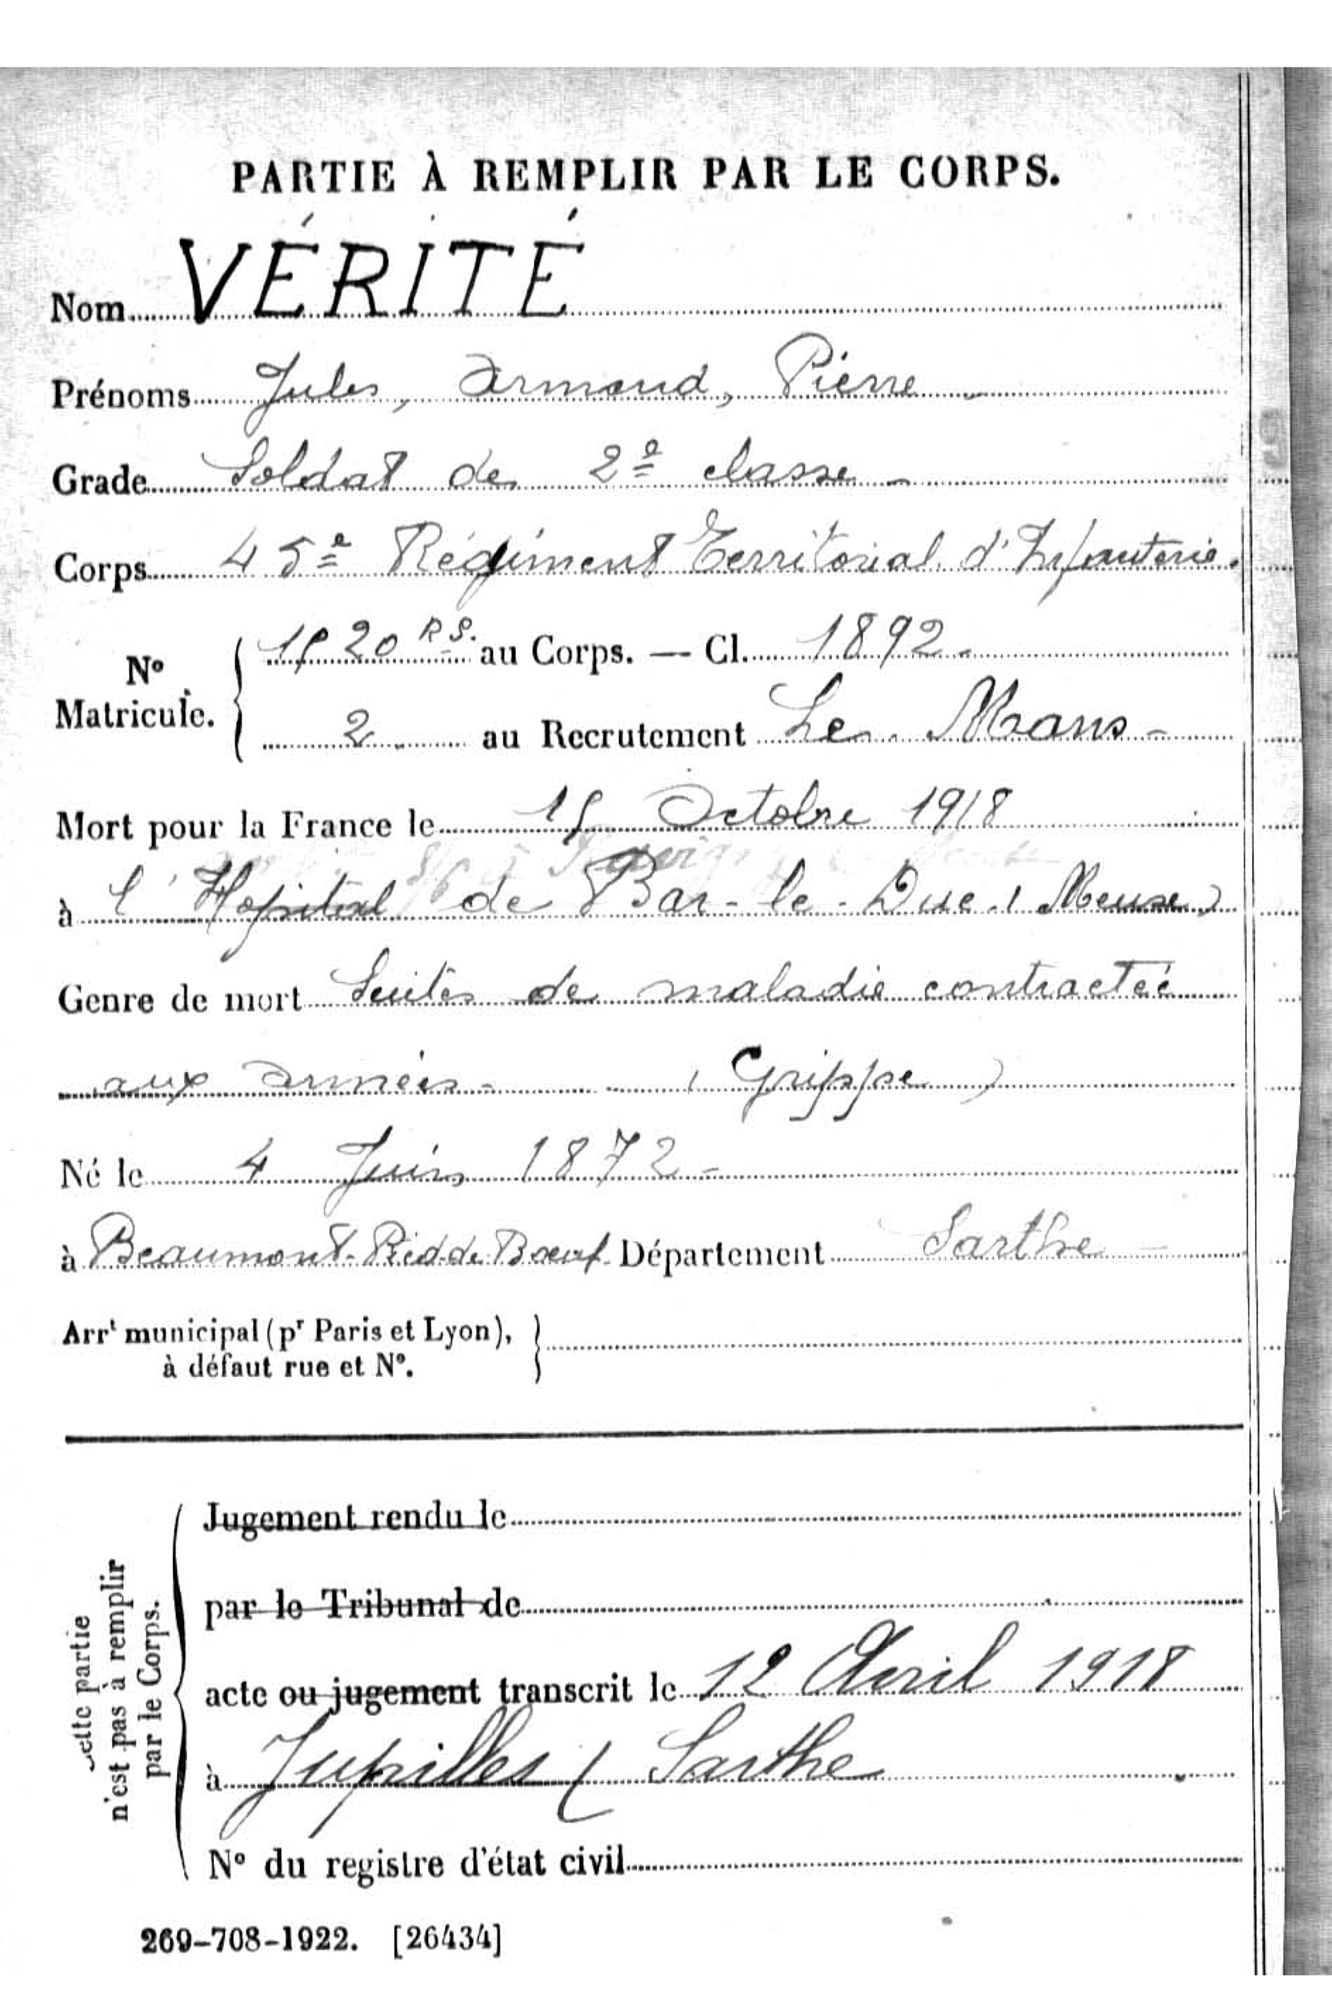 PARTIE À REMPLIR PAR LE CORPS.
Nom VÉRITÉ
Prénoms Jules, Armand, Pierre
Grade Soldat de 2e classe -
Corps 45e Régiment Territorial d'Infanterie.
No Matricule. 1520 RS. au Corps. — Cl. 1892 -
2 au Recrutement Le Mans -
Mort pour la France le 15 Octobre 1918
à l'Hopital de Bar-le-Duc (Meuse)
Genre de mort Suites de maladie contractée
aux armées - (Grippe)
Né le 4 Juin 1872 -
à Beaumont-Pied-de-Bœuf Département Sarthe -
Arrt municipal (pr Paris et Lyon),
à défaut rue et No.
Cette partie
n'est pas à remplir
par le Corps.
Jugement rendu le
par le Tribunal de
acte ou jugement transcrit le 12 Avril 1918
à Jupilles ( Sarthe
No du registre d'état civil
269-708-1922. [26434]